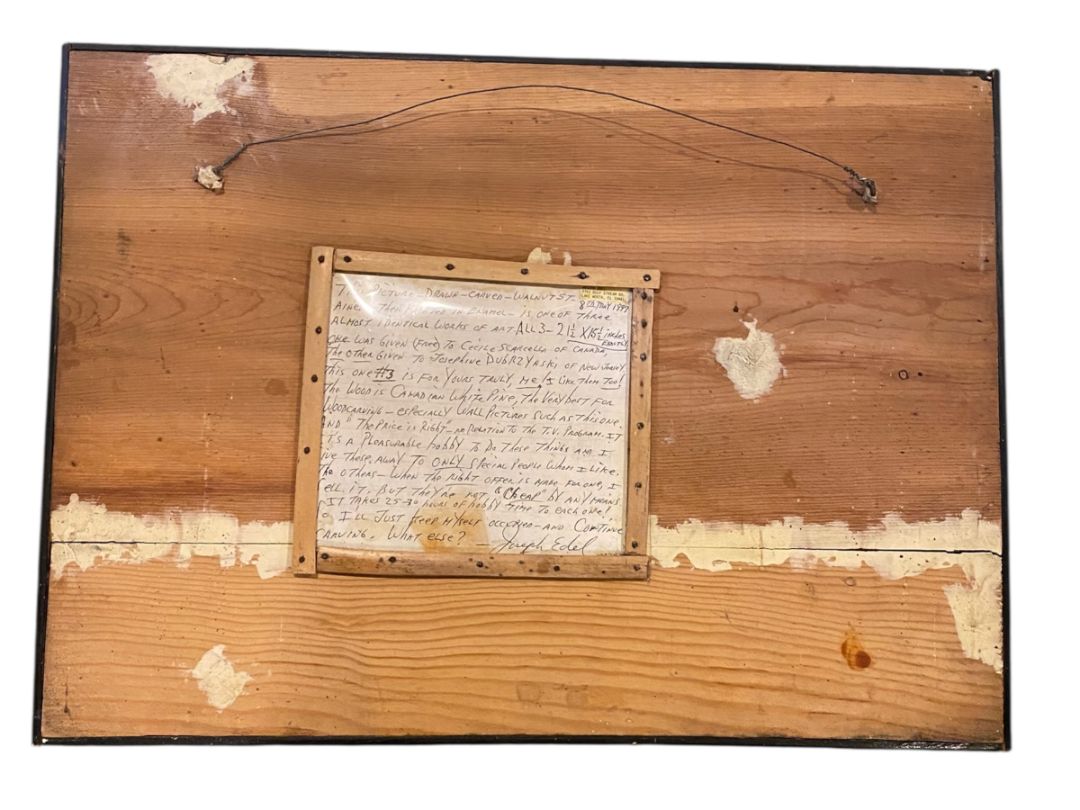 PICTURE - DRAWN - CARVED - WALNUT ST.
LAKE WORTH, FL
8TH MAY 1997
THEN IN ENAMEL - IS ONE OF THREE
ALMOST IDENTICAL WORKS OF ART ALL 3 - 21½ X 15½ inches
EXACTLY
ONE WAS GIVEN (FREE) TO CECILE SCARCELLA OF CANADA,
THE OTHER GIVEN TO JOSEPHINE OF NEW JERSEY
THIS ONE #3 IS FOR YOURS TRULY, ME! I LIKE THEM TOO!
THE WOOD IS CANADIAN WHITE PINE, THE VERY BEST FOR
WOODCARVING - ESPECIALLY WALL PICTURES SUCH AS THIS ONE.
AND "THE PRICE IS RIGHT" - NO RELATION TO THE T.V. PROGRAM. IT
IT'S A PLEASURABLE HOBBY TO DO THESE THINGS AND I
GIVE THESE, AWAY TO ONLY SPECIAL PEOPLE WHOM I LIKE.
THE OTHERS - WHEN THE RIGHT OFFER IS MADE FOR ONE, I
SELL IT. BUT THEY'RE NOT "Cheap" BY ANY MEANS
IT TAKES 25-30 HOURS OF HOBBY TIME TO EACH ONE!
SO I'LL JUST KEEP MYSELF OCCUPIED - AND CONTINUE
CARVING. WHAT ELSE? Joseph Edel